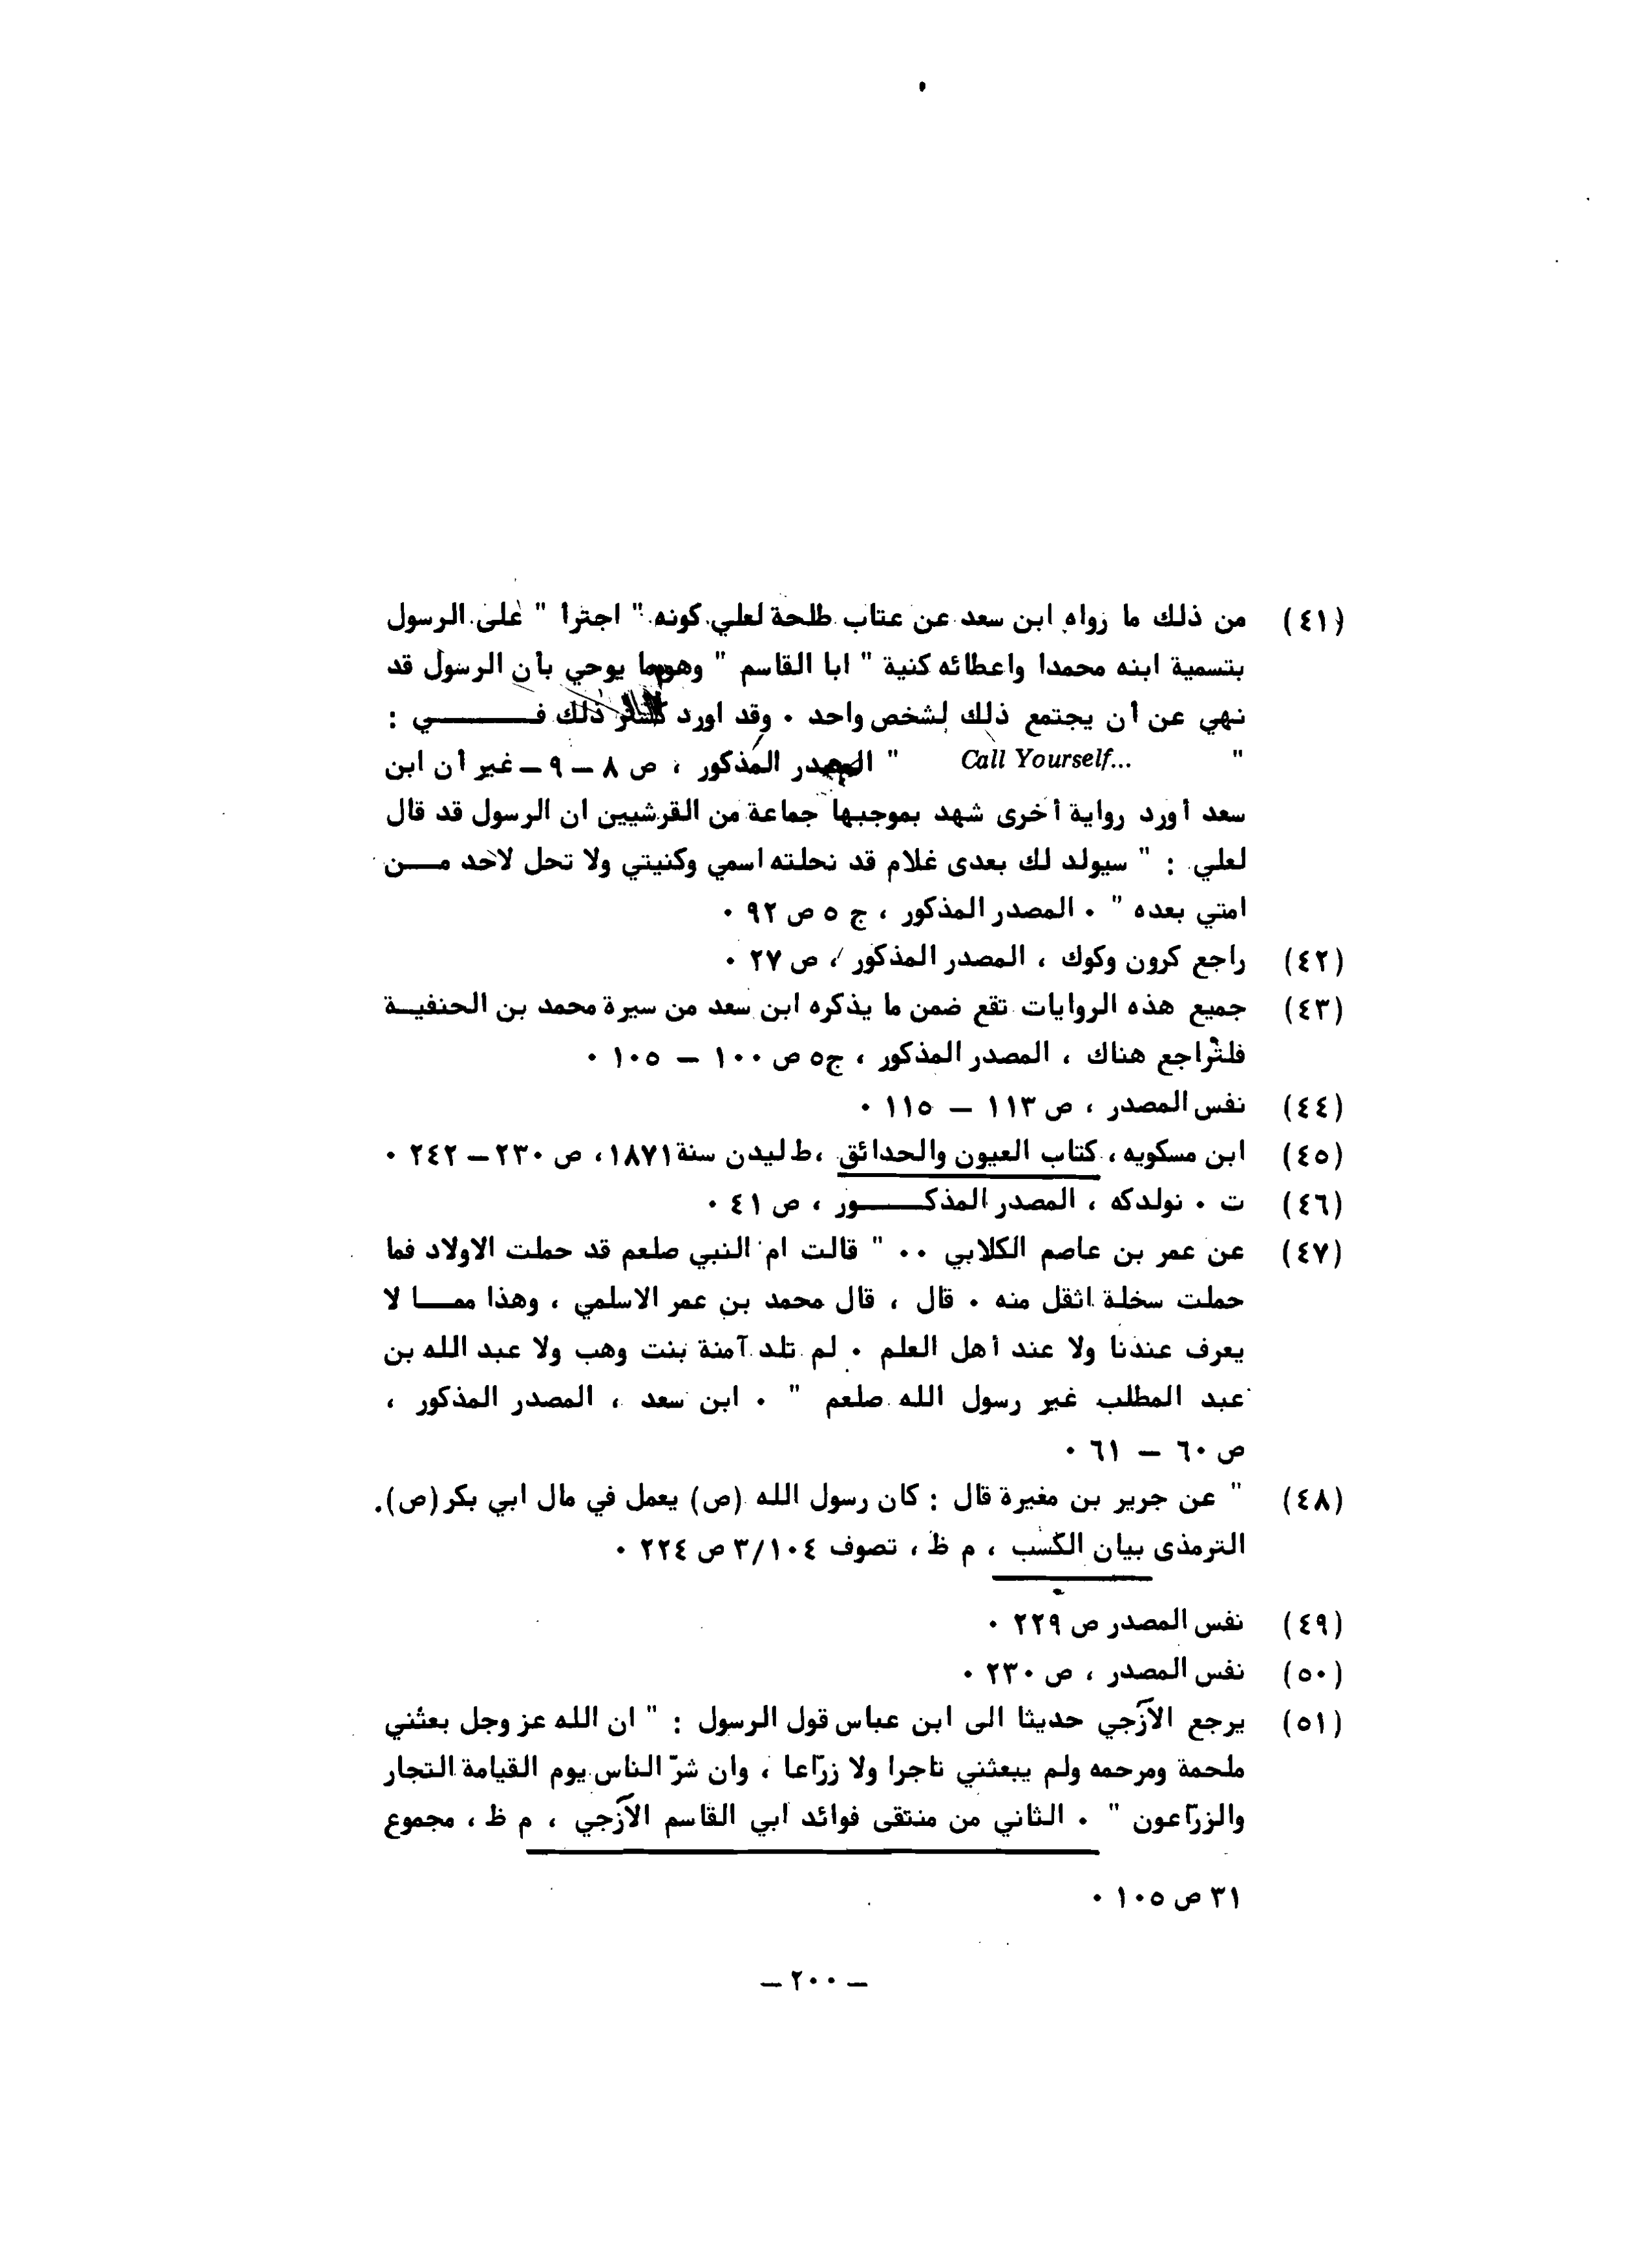 (٤١) من ذلك ما رواه ابن سعد عن عتاب طلحة لعلي كونه " اجترأ " على الرسول
بتسمية ابنه محمدا واعطائه كنية " ابا القاسم " وهو ما يوحي بأن الرسول قد
نهي عن أن يجتمع ذلك لشخص واحد ٠ وقد اورد كستر ذلك فــــــي :
" Call Yourself... " المصدر المذكور ، ص ٨ – ٩ – غير أن ابن
سعد أورد رواية أخرى شهد بموجبها جماعة من القرشيين ان الرسول قد قال
لعلي : " سيولد لك بعدى غلام قد نحلته اسمي وكنيتي ولا تحل لاحد مــن
امتي بعده " ٠ المصدر المذكور ، ج ٥ ص ٩٢ ٠
(٤٢) راجع كرون وكوك ، المصدر المذكور ، ص ٢٧ ٠
(٤٣) جميع هذه الروايات تقع ضمن ما يذكره ابن سعد من سيرة محمد بن الحنفيــة
فلتراجع هناك ، المصدر المذكور ، ج٥ ص ١٠٠ – ١٠٥ ٠
(٤٤) نفس المصدر ، ص ١١٣ – ١١٥ ٠
(٤٥) ابن مسكويه ، كتاب العيون والحدائق ،ط ليدن سنة ١٨٧١، ص ٢٣٠ – ٢٤٢ ٠
(٤٦) ت ٠ نولدكه ، المصدر المذكــــور ، ص ٤١ ٠
(٤٧) عن عمر بن عاصم الكلابي ٠٠ " قالت ام النبي صلعم قد حملت الاولاد فما
حملت سخلة اثقل منه ٠ قال ، قال محمد بن عمر الاسلمي ، وهذا ممــا لا
يعرف عندنا ولا عند أهل العلم ٠ لم تلد آمنة بنت وهب ولا عبد الله بن
عبد المطلب غير رسول الله صلعم " ٠ ابن سعد ، المصدر المذكور ،
ص ٦٠ – ٦١ ٠
(٤٨) " عن جرير بن مغيرة قال : كان رسول الله (ص) يعمل في مال ابي بكر (ص).
الترمذى بيان الكسب ، م ظ ، تصوف ٣/١٠٤ ص ٢٢٤ ٠
(٤٩) نفس المصدر ص ٢٢٩ ٠
(٥٠) نفس المصدر ، ص ٢٣٠ ٠
(٥١) يرجع الآزجي حديثا الى ابن عباس قول الرسول : " ان الله عز وجل بعثني
ملحمة ومرحمه ولم يبعثني تاجرا ولا زرّاعا ، وان شرّ الناس يوم القيامة التجار
والزرّاعون " ٠ الثاني من منتقى فوائد ابي القاسم الآزجي ، م ظ ، مجموع
٣١ ص ١٠٥ ٠
– ٢٠٠ –